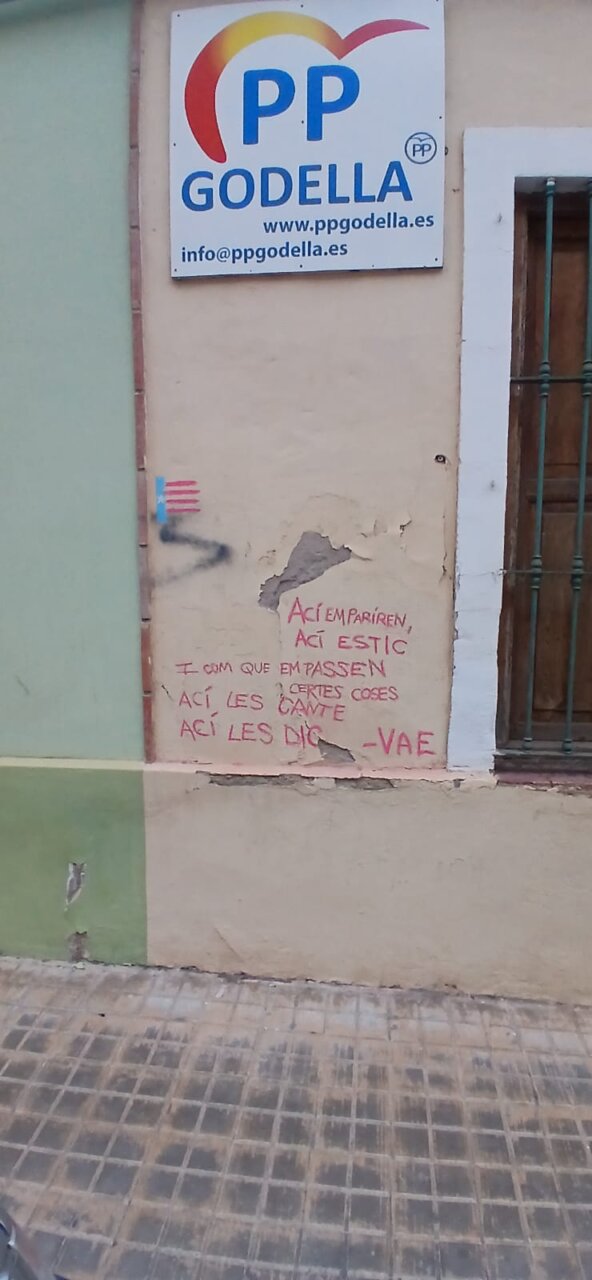 PP
PP
GODELLA
www.ppgodella.es
info@ppgodella.es
ACÍ EM PARIREN,
ACÍ ESTIC
I COM QUE EM PASSEN
CERTES COSES
ACÍ LES CANTE
ACÍ LES DIC
-VAE